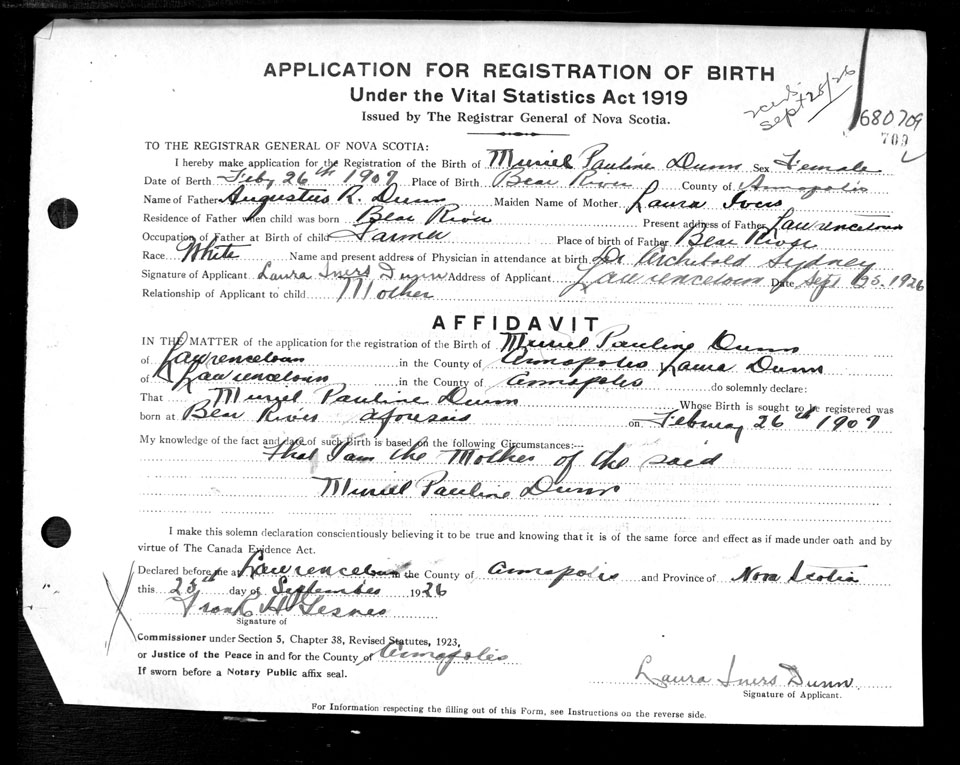 APPLICATION FOR REGISTRATION OF BIRTH
Under the Vital Statistics Act 1919
Issued by The Registrar General of Nova Scotia.
recd. Sept 28/26
680709
709
TO THE REGISTRAR GENERAL OF NOVA SCOTIA:
I hereby make application for the Registration of the Birth of Muriel Pauline Dunn Sex Female
Date of Berth Feby 26th 1907 Place of Birth Bear River County of Annapolis
Name of Father Augustus R. Dunn Maiden Name of Mother Laura
Residence of Father when child was born Bear River Present address of Father Lawrencetown
Occupation of Father at Birth of child Farmer Place of birth of Father Bear River
Race White Name and present address of Physician in attendance at birth Dr Archibald Sydney
Signature of Applicant Laura Dunn Address of Applicant Lawrencetown Date Sept 25. 1926
Relationship of Applicant to child Mother
AFFIDAVIT
IN THE MATTER of the application for the registration of the Birth of Muriel Pauline Dunn
of Lawrencetown in the County of Annapolis Laura Dunn
of Lawrencetown in the County of Annapolis do solemnly declare:
That Muriel Pauline Dunn Whose Birth is sought to be registered was
born at Bear River aforesaid on February 26th 1907
My knowledge of the fact and date of such Birth is based on the following Circumstances:--
that I am the Mother of the said
Muriel Pauline Dunn
I make this solemn declaration conscientiously believing it to be true and knowing that it is of the same force and effect as if made under oath and by
virtue of The Canada Evidence Act.
Declared before me at Lawrencetown in the County of Annapolis and Province of Nova Scotia
this 25th day of September 1926
Frank H
Signature of
Commissioner under Section 5, Chapter 38, Revised Statutes, 1923,
or Justice of the Peace in and for the County of Annapolis
If sworn before a Notary Public affix seal.
Laura Dunn
Signature of Applicant.
For Information respecting the filling out of this Form, see Instructions on the reverse side.